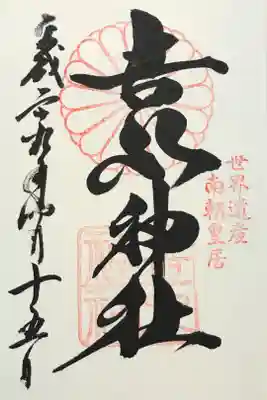 世界遺産
南朝皇居
吉水神社
平成二九年四月十五日